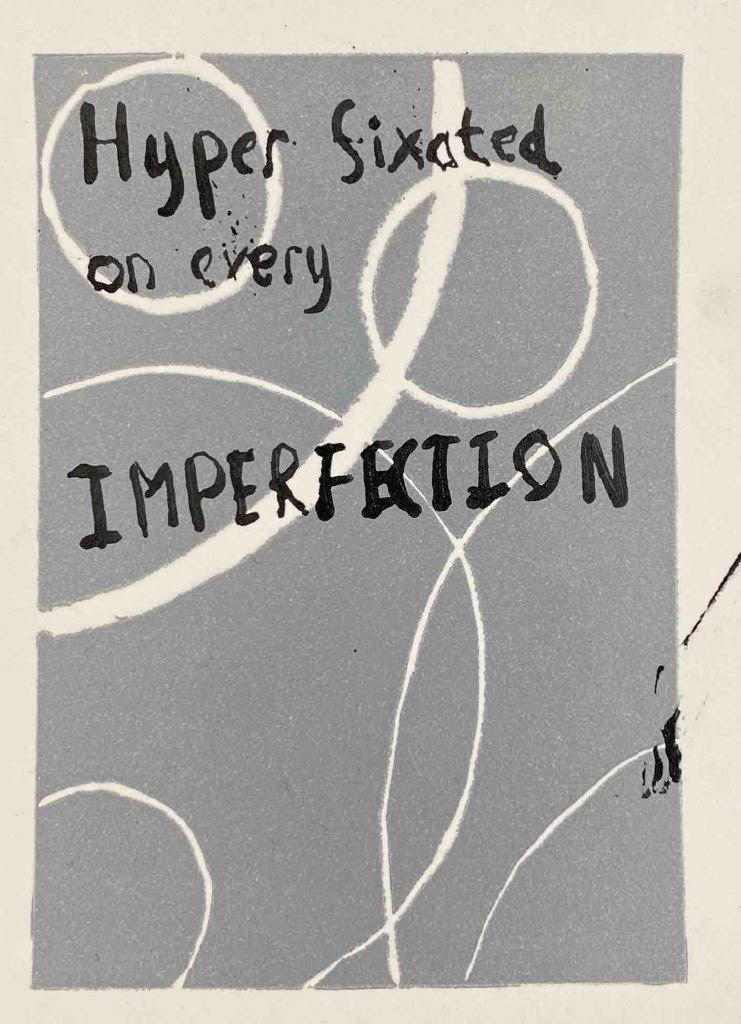 Hyper fixated
on every
IMPERFECTION